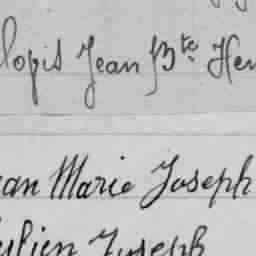 logis Jean Bte Hen
ean Marie Joseph
ulien Joseph